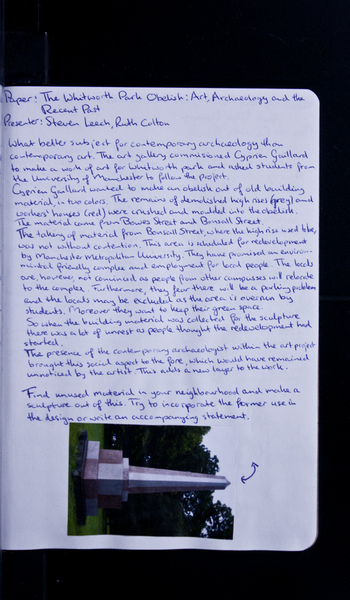 Paper: The Whitworth Park Obelisk: Art, Archaeology and the
Recent Past
Presenter: Steven Leech, Ruth Colton
What better subject for contemporary archaeology than
contemporary art. The art gallery commissioned Cyprien Gaillard
to make a work of art for Whitworth park and asked students from
the University of Manchester to follow the project.
Cyprien Gaillard wanted to make an obelisk out of old building
material, in two colors. The remains of demolished high rises (grey) and
workers' houses (red) were crushed and moulded into the obelisk.
The material came from Bowes Street and Bonsall Street.
The taking of material from Bonsall Street, where the high rise used to be,
was not without contention. This area is scheduled for redevelopment
by Manchester Metropolitan University. They have promised an environ-
mental friendly complex and employment for local people. The locals
are, however, not convinced as people from other campusses will relocate
to the complex. Furthermore, they fear there will be a parking problem
and the locals may be excluded as the area is overrun by
students. Moreover they want to keep their green space.
So when the building material was collected for the sculpture
there was a lot of unrest as people thought the redevelopment had
started.
The presence of the contemporary archaeologist within the art project
brought this social aspect to the fore, which would have remained
unnoticed by the artist. This adds a new layer to the work.
Find unused material in your neighbourhood and make a
sculpture out of this. Try to incorporate the former use in
the design or write an accompanying statement.